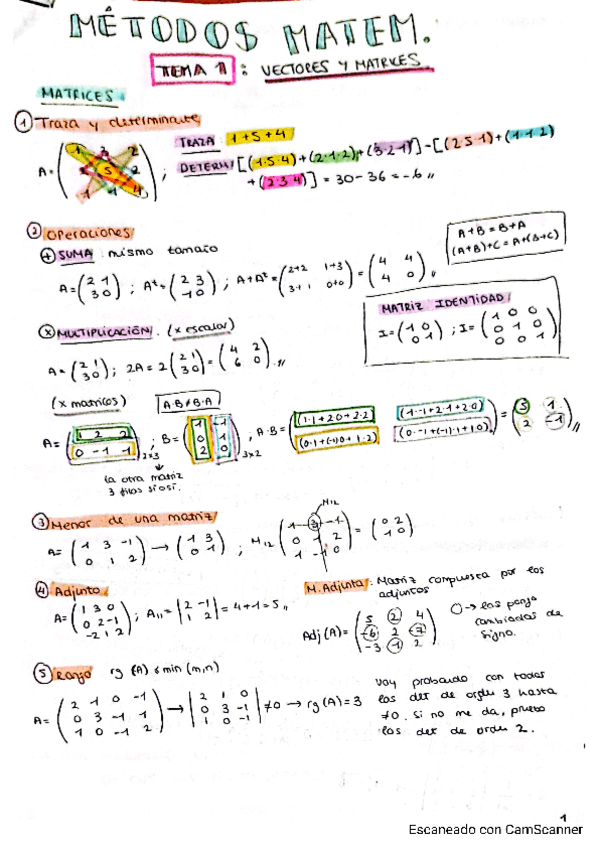 MÉTODOS MATEM.
TEMA 1: VECTORES Y MATRICES
MATRICES
① Traza y determinante
TRAZA: 1+5+4
A= ( 5 ) ; DETERM: [(1·5·4)+(2·1·2)+(3·2·1)]-[(2·5·1)+(1·1·2)
+(2·3·4)] = 30-36 = -6 //
② Operaciones
A+B = B+A
(A+B)+C = A+(B+C)
(+) SUMA: mismo tamaño
A= (2 1 / 3 0) ; Aᵗ= (2 3 / 1 0) ; A+Aᵗ= (2+2 1+3 / 3+1 0+0) = (4 4 / 4 0) //
MATRIZ IDENTIDAD
I= (1 0 / 0 1) ; I= (1 0 0 / 0 1 0 / 0 0 1)
(x) MULTIPLICACIÓN. (x escalar)
A= (2 1 / 3 0) ; 2A= 2 (2 1 / 3 0) = (4 2 / 6 0) //
(x matrices) A·B≠B·A
A= (1 2 2 / 0 -1 1) 2x3 ; B= (1 -1 / 0 1 / 2 0) 3x2 ; A·B= ((1·1+2·0+2·2) (1·-1+2·1+2·0) / (0·1+(-1)·0+1·2) (0·-1+(-1)·1+1·0)) = (5 1 / 2 -1) //
la otra matriz
3 filas si o si.
③ Menor de una matriz
A= (1 3 -1 / 0 1 2) → (1 3 / 0 1) ; M12 (1 3 -1 / 0 1 2 / 1 -1 0) = (0 2 / 1 0)
M12
④ Adjunto
A= (1 3 0 / 0 2 -1 / -2 1 2) ; A11= |2 -1 / 1 2| = 4+1 = 5 //
M. Adjunta: Matriz compuesta por los
adjuntos
Adj(A)= (5 2 4 / -6 2 -7 / -3 1 2)
○→ las pongo
cambiadas de
signo.
⑤ Rango rg (A) ≤ min (m,n)
A= (2 1 0 -1 / 0 3 -1 1 / 1 0 -1 2) → |2 1 0 / 0 3 -1 / 1 0 -1| ≠0 → rg(A)=3
Voy probando con todos
los det de orden 3 hasta
≠0. Si no me da, pruebo
los det de orden 2.
1
Escaneado con CamScanner